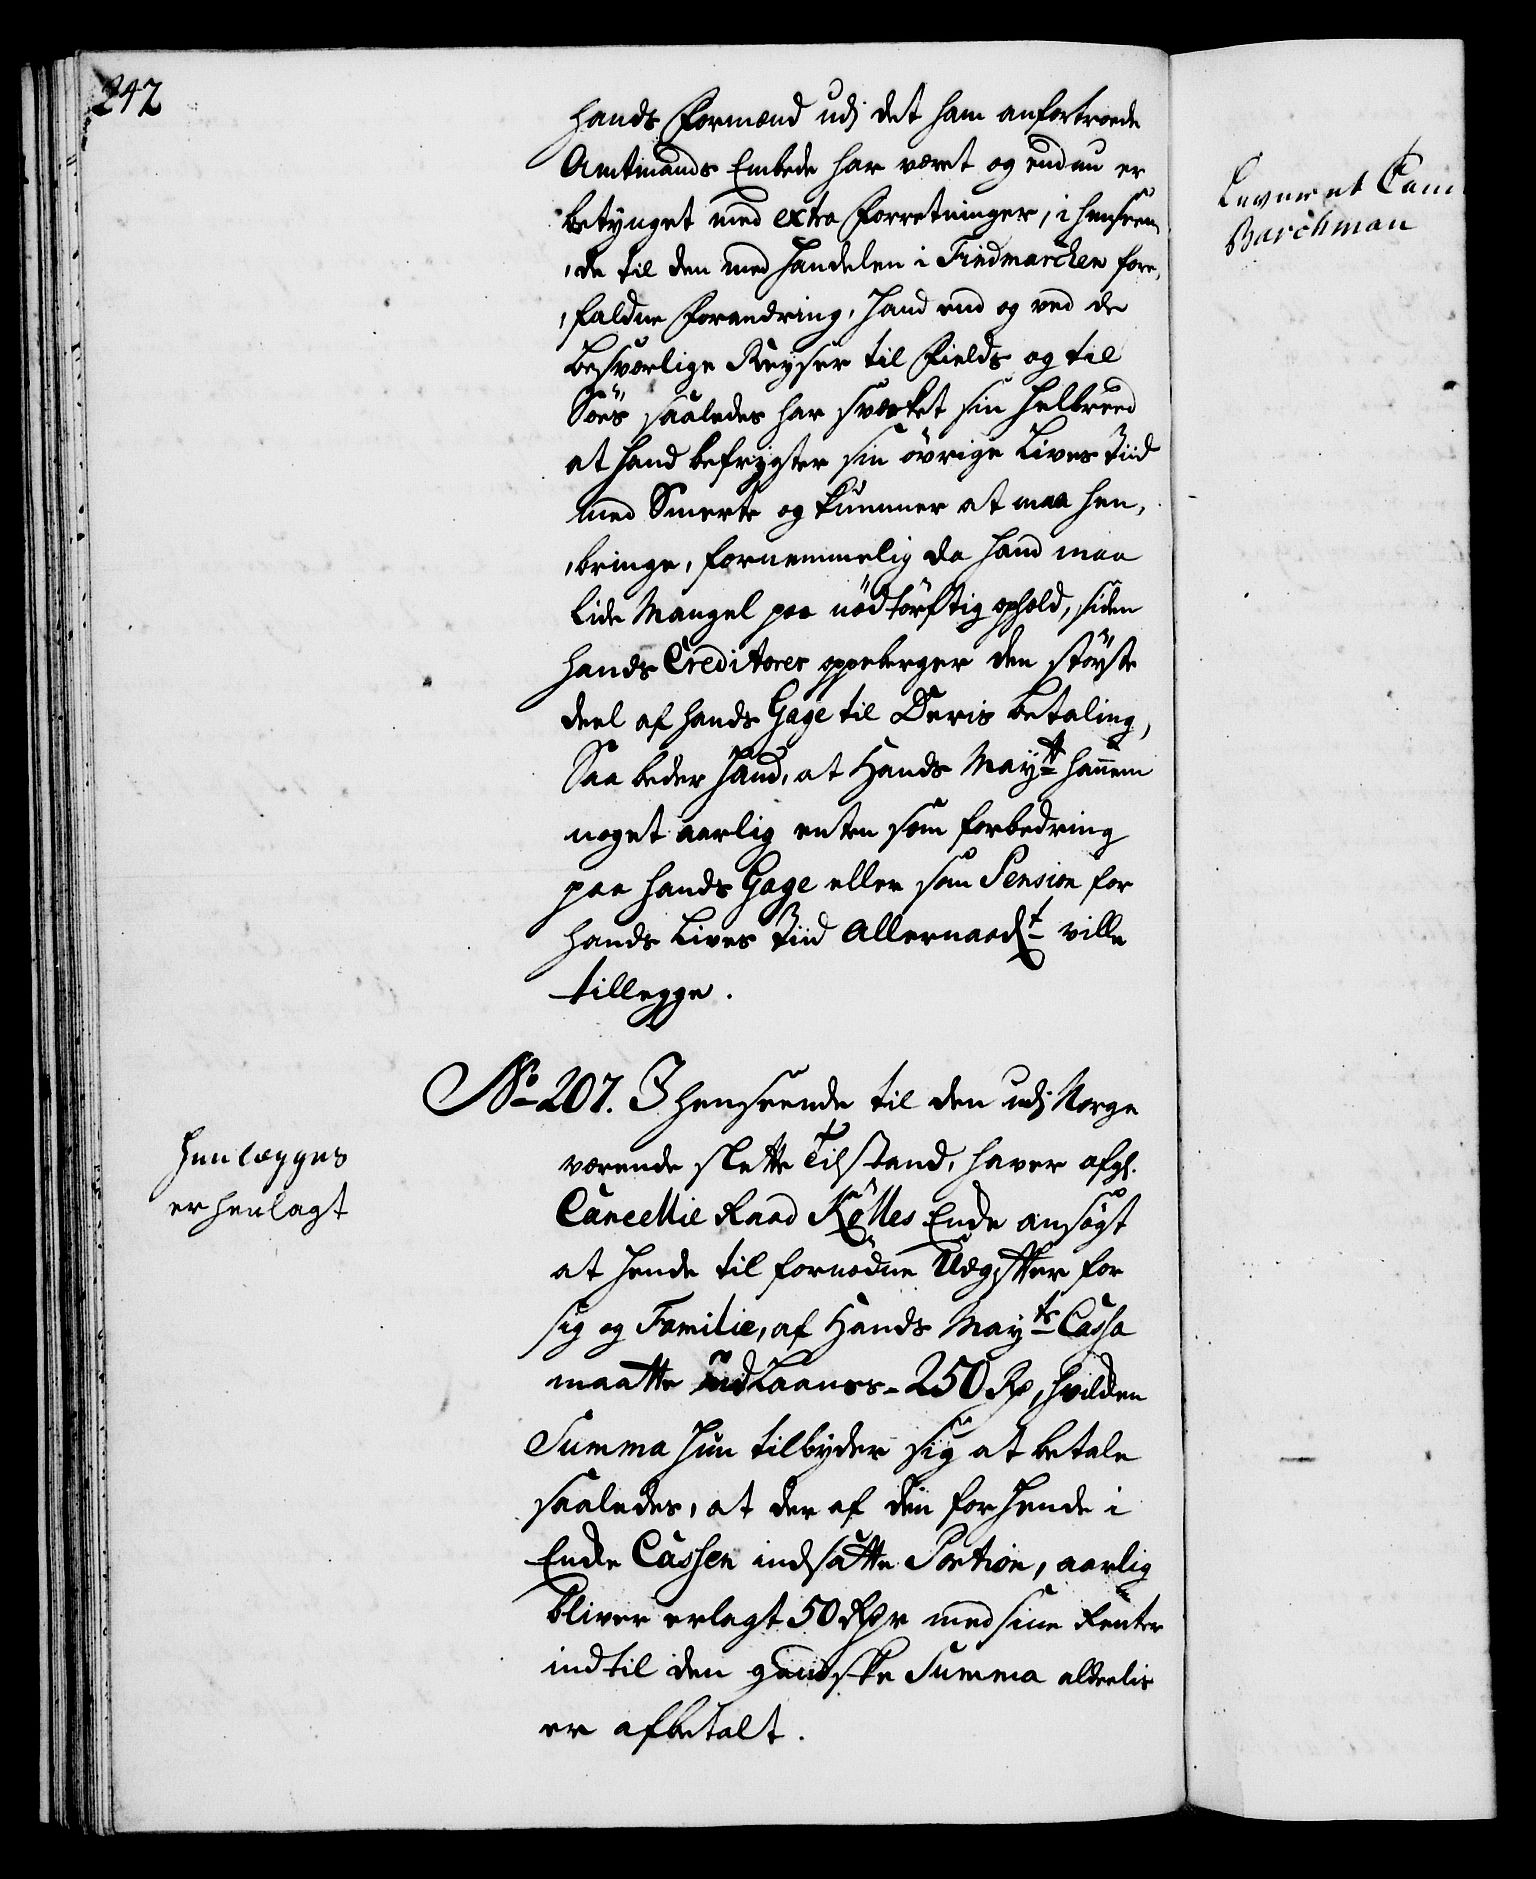 242
hands Formænd udj det ham anfortroede
Amtmands Embede har været og endnu er
betynget med extra Forretninger, i henseen,
,de til den med Handelen i Findmarchen fore,
,faldne Forandring, Hand end og ved de
besværlige Reyser til Fields og til
Söes saaledes har svækket sin Helbreed
at hand befrygter sin övrige Lives Tiid
med Smerte og kummer at maa hen,
,bringe, fornemmelig da hand maa
lide Mangel paa nödtörftig ophold, siden
hands Creditores oppeberger den störste
deel af hands Gage til Deris betaling,
Saa beder Hand, at Hands Maytt hannem
noget aarlig enten som forbedring
paa hands Gage eller som Pension for
hands Lives Tiid Allernaadt ville
tillegge.
No 207. I henseende til den udj Norge
værende slette Tilstand, haver afgl.
Cancellie Raad Röttes Encke ansögt
at hende til fornödne Udgifter for
sig og Familie, af Hands Mayts Cassa
maatte udLaanes 250 Rd, hvilcken
Summa Hun tilbyder sig at betale
saaledes, at der af den for Hende i
Encke Cassen indsatte Portion, aarlig
bliver erlagt 50 Rdr med sine Renter
indtil den gandske Summa alderlis
er afbetalt.
Henlægges
er henlagt
Leveret Cam
Barchman